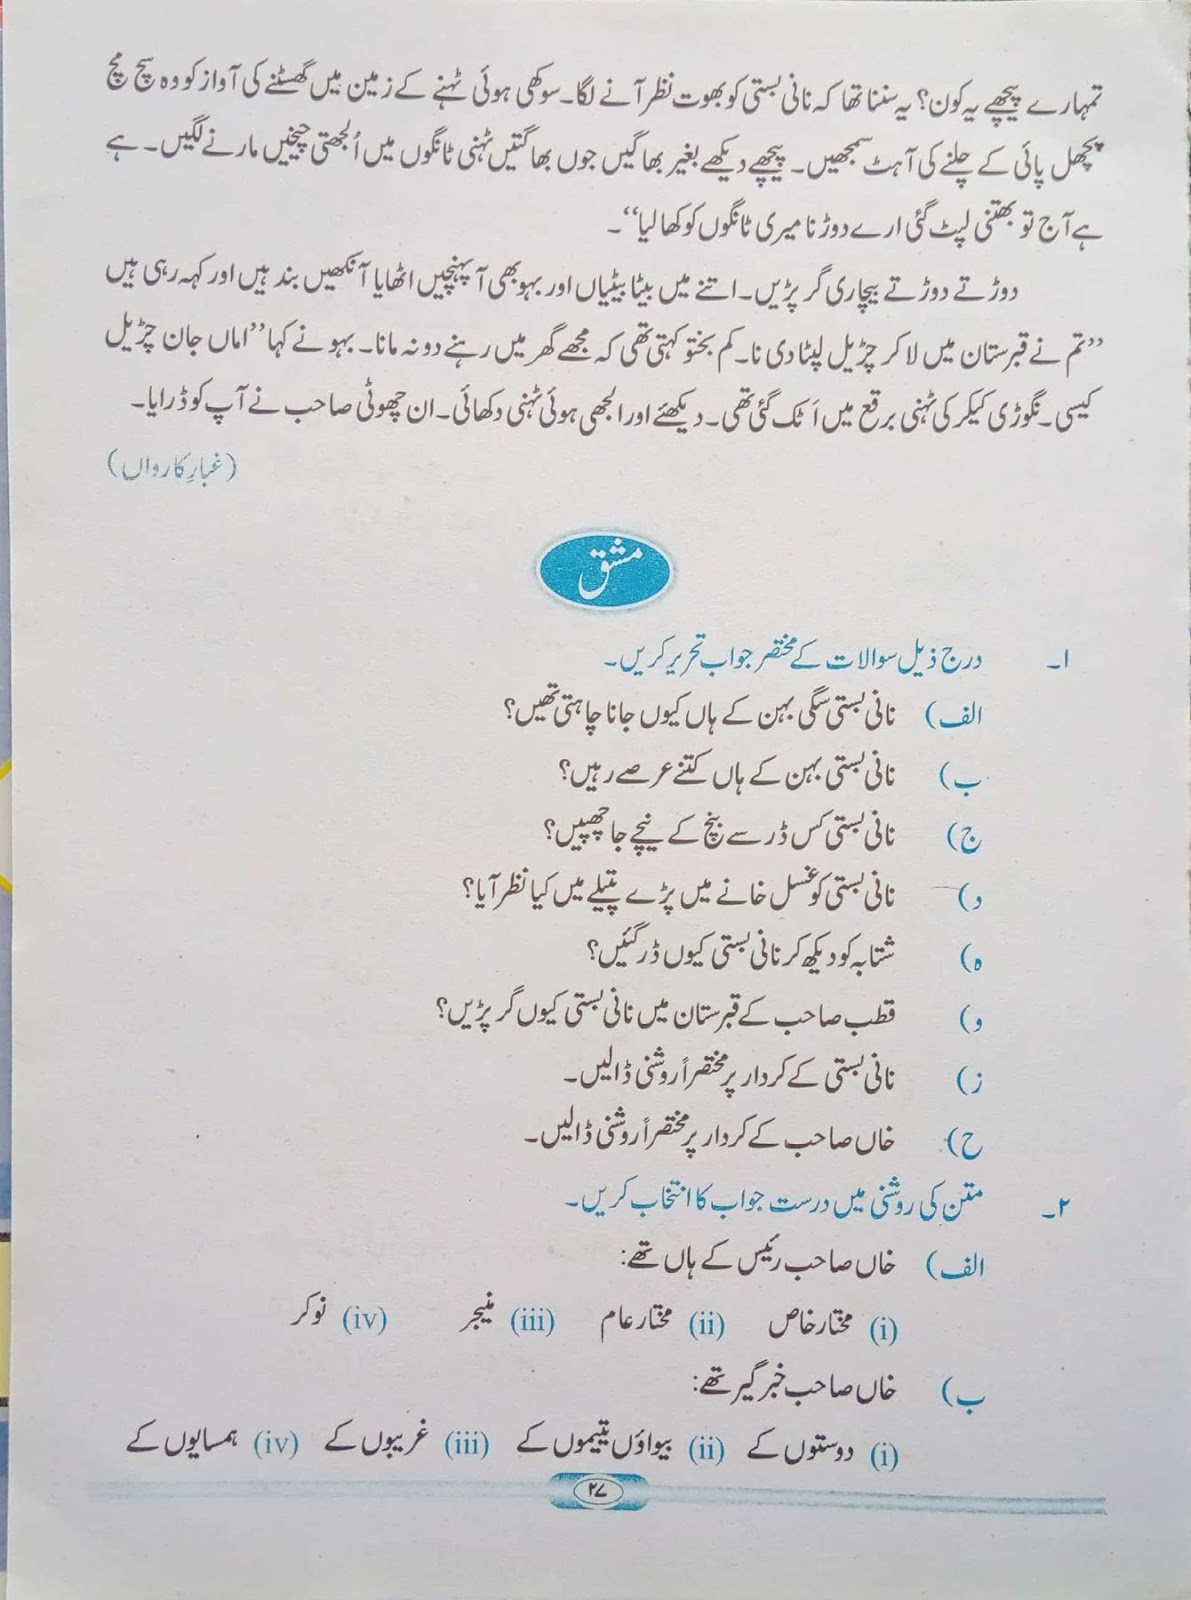 تمہارے پیچھے یہ کون؟ یہ سننا تھا کہ نانی بستی کو بھوت نظر آنے لگا۔ سوکھی ہوئی ٹہنے کے زمین میں گھسٹنے کی آواز کو وہ سچ مچ
پچھل پائی کے چلنے کی آہٹ سمجھیں۔ پیچھے دیکھے بغیر بھاگیں جوں بھاگتیں ٹہنی ٹانگوں میں اُلجھتی چیخیں مارنے لگیں۔ ہے
ہے آج تو بھتنی لپٹ گئی ارے دوڑنا میری ٹانگوں کو کھا لیا‘‘۔
دوڑتے دوڑتے بیچاری گر پڑیں۔ اتنے میں بیٹا بیٹیاں اور بہو بھی آ پہنچیں اٹھایا آنکھیں بند ہیں اور کہہ رہی ہیں
’’تم نے قبرستان میں لا کر چڑیل لپٹا دی نا۔ کم بختو کہتی تھی کہ مجھے گھر میں رہنے دو نہ مانا۔ بہو نے کہا ’’اماں جان چڑیل
کیسی۔ نگوڑی کیکر کی ٹہنی برقع میں اَٹک گئی تھی۔ دیکھئے اور الجھی ہوئی ٹہنی دکھائی۔ ان چھوٹی صاحب نے آپ کو ڈرایا۔
(غبارِ کارواں)
مشق
۱۔ درج ذیل سوالات کے مختصر جواب تحریر کریں۔
الف) نانی بستی سگی بہن کے ہاں کیوں جانا چاہتی تھیں؟
ب) نانی بستی بہن کے ہاں کتنے عرصے رہیں؟
ج) نانی بستی کس ڈر سے پنچ کے نیچے جا چھپیں؟
د) نانی بستی کو غسل خانے میں پڑے پتیلے میں کیا نظر آیا؟
ہ) شتابہ کو دیکھ کر نانی بستی کیوں ڈر گئیں؟
و) قطب صاحب کے قبرستان میں نانی بستی کیوں گر پڑیں؟
ز) نانی بستی کے کردار پر مختصراً روشنی ڈالیں۔
ح) خاں صاحب کے کردار پر مختصراً روشنی ڈالیں۔
۲۔ متن کی روشنی میں درست جواب کا انتخاب کریں۔
الف) خاں صاحب رئیس کے ہاں تھے:
(i) مختار خاص (ii) مختار عام (iii) منیجر (iv) نوکر
ب) خاں صاحب خبر گیر تھے:
(i) دوستوں کے (ii) بیواؤں یتیموں کے (iii) غریبوں کے (iv) ہمسایوں کے
۲۷